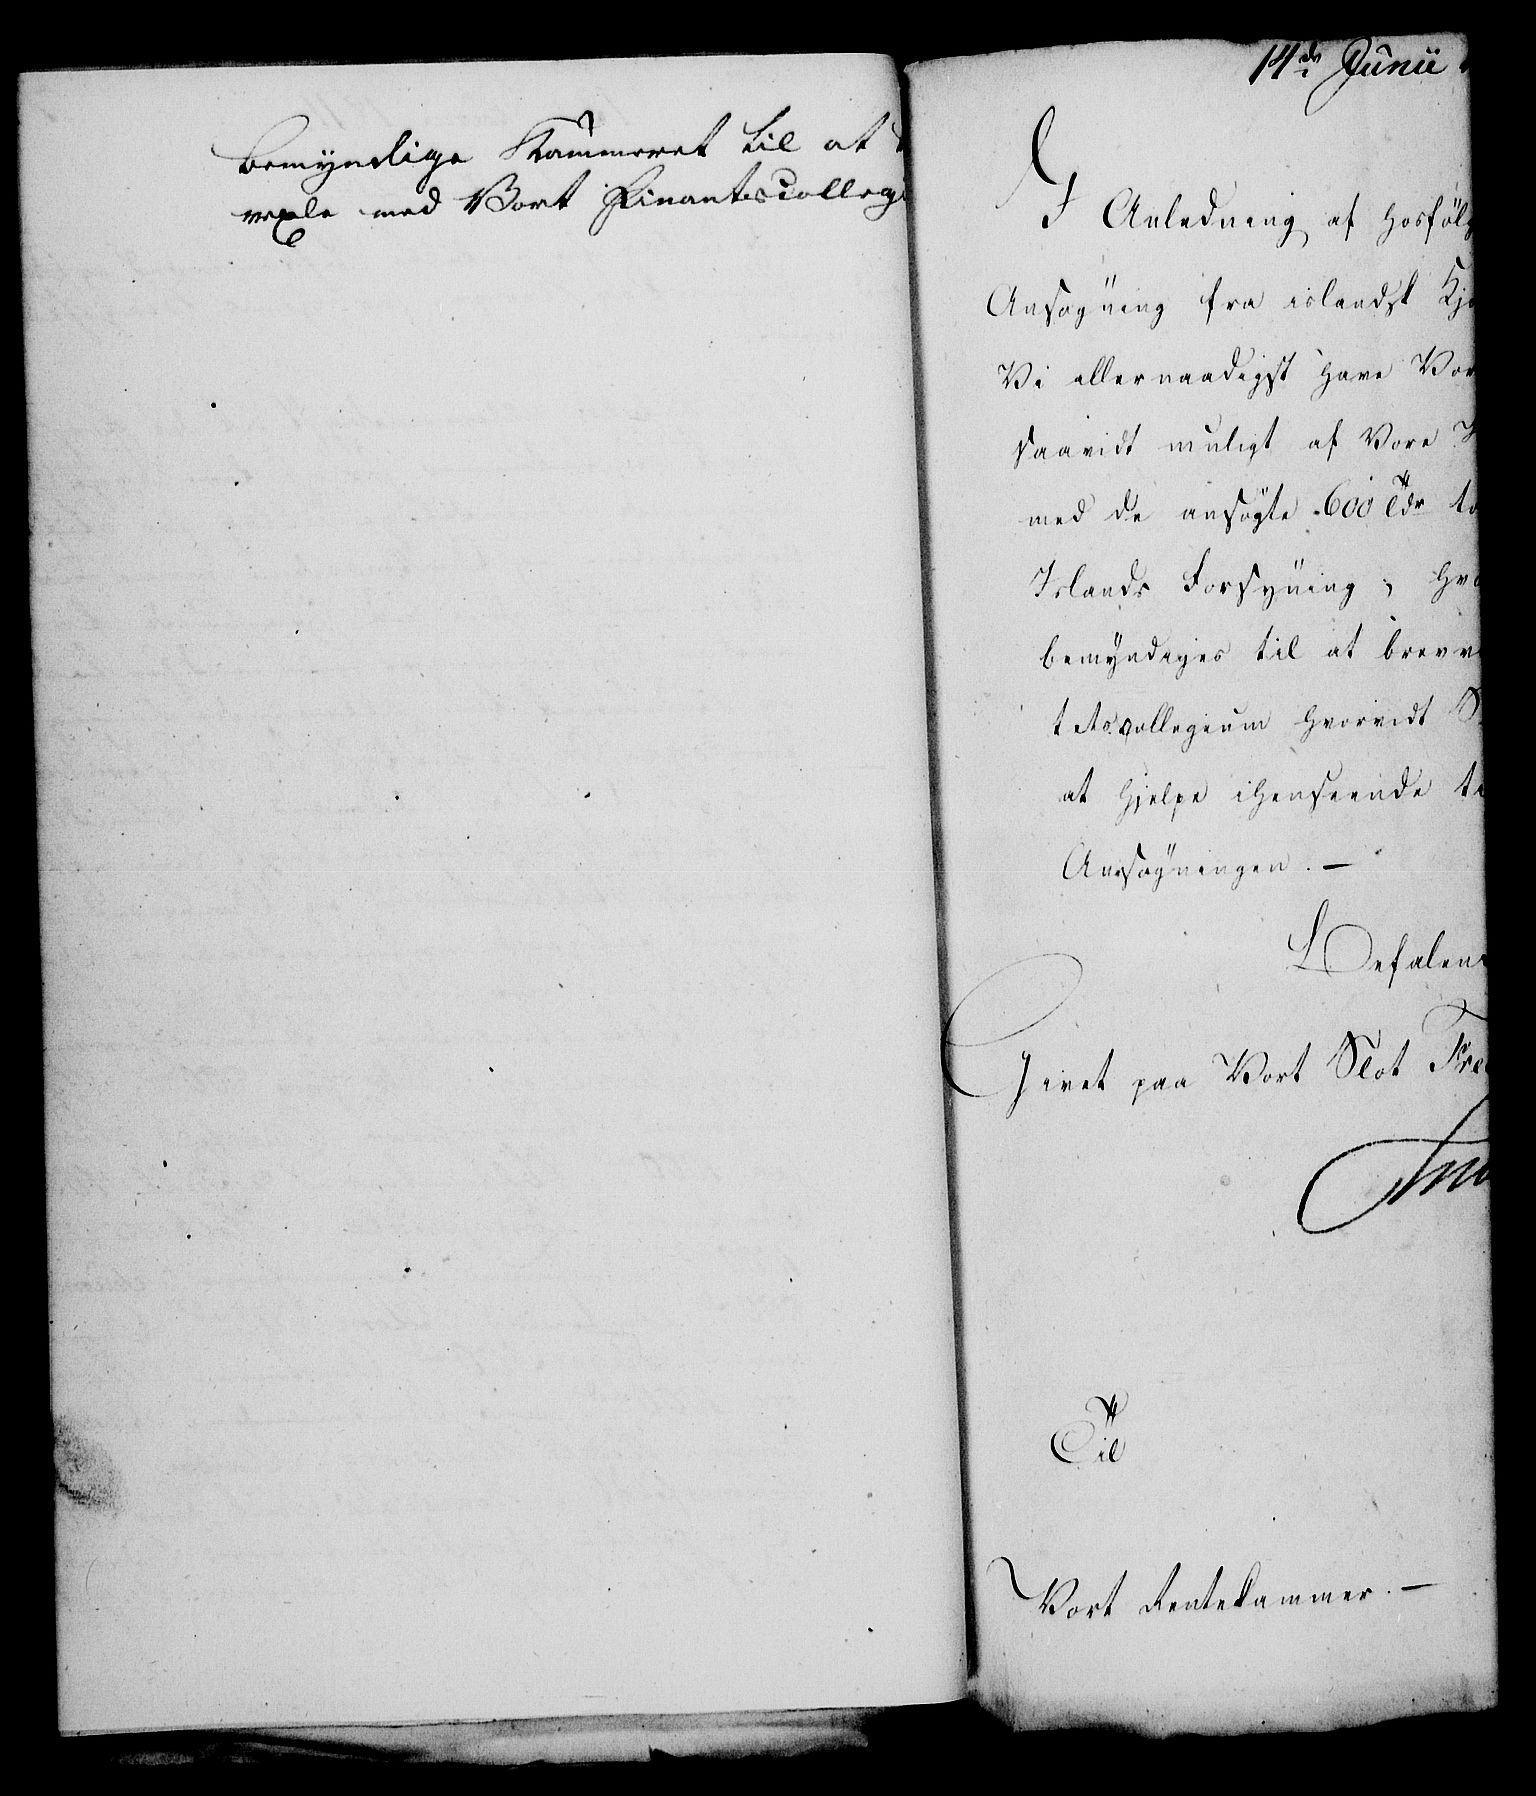 bemyndige Kammeret til at
vexle med Vort Finantscolleg
14de Junii
I Anledning af hosfølg
Ansøgning fra islandsk Kjø
Vi allernaadigst have Vor
saavidt muligt af Vore
med de ansøgte 600 Tdr
Islands Forsyning, hvo
bemyndiges til at brevve
tetscollegium hvorvidt
at hjelpe ihenseende ti
Ansøgningen. —
Befalen
Givet paa Vort Slot Fre
Til
Vort Rentekammer. —